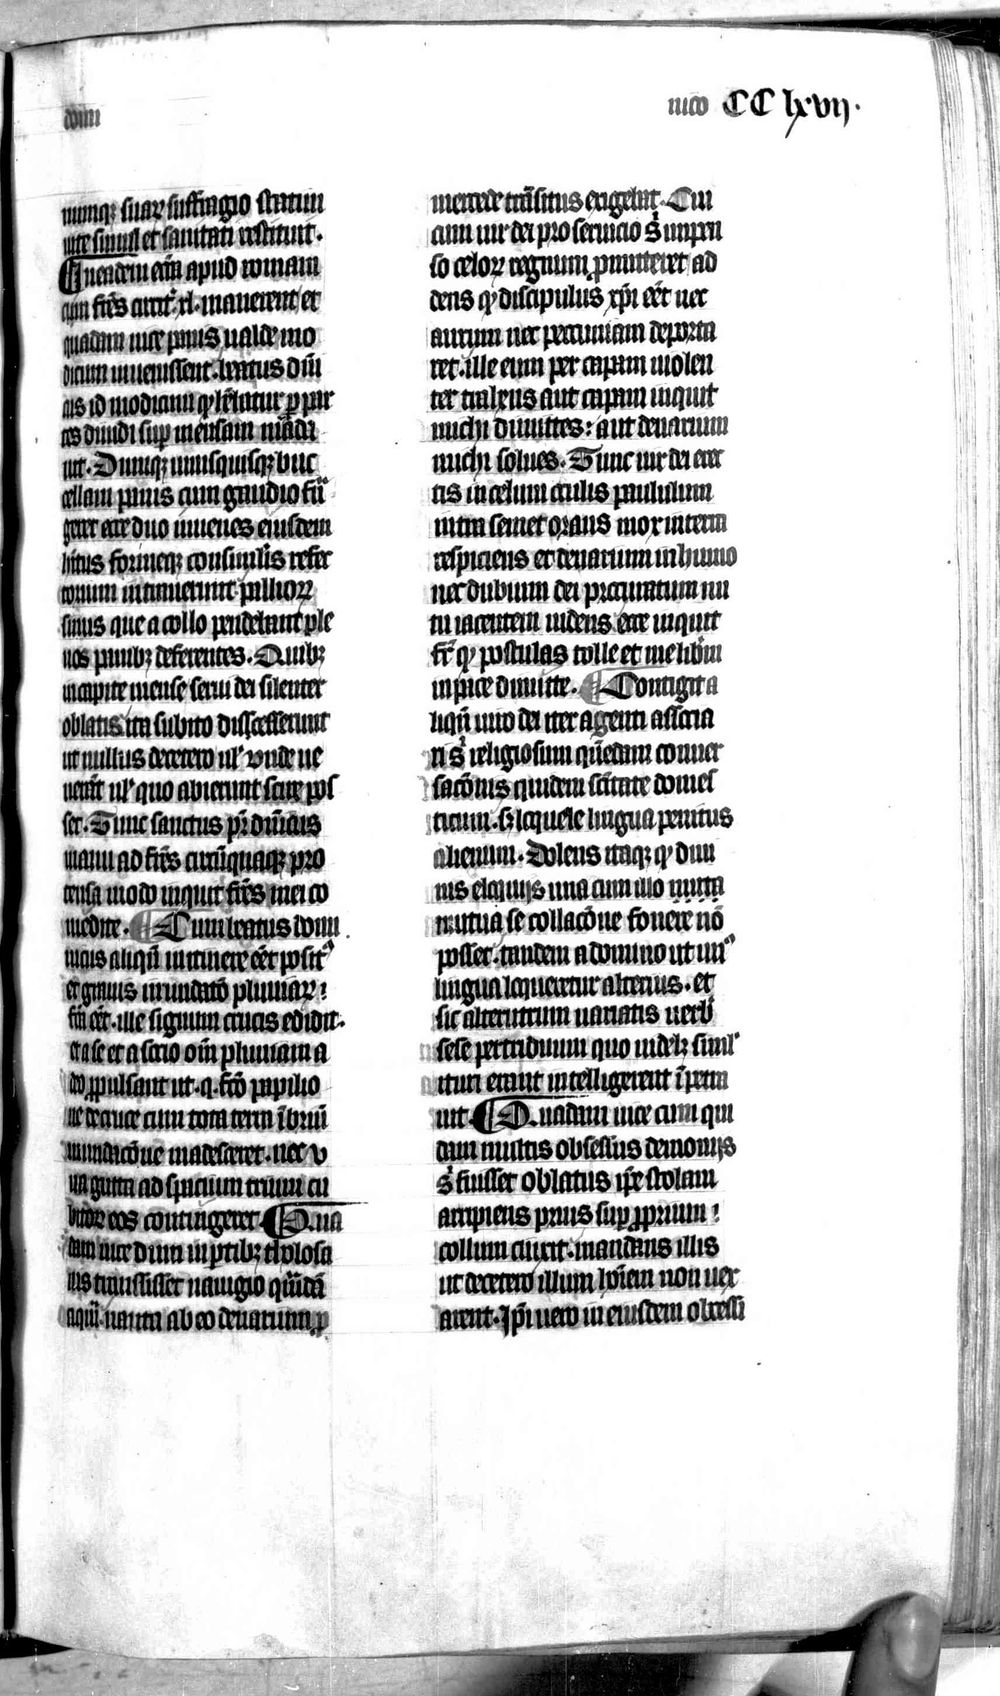 domi
nico CC lxvij.
numqȝ suaꝝ suffragio statim
uite simul et sanitati restituit.
Quadem etiā apud romam
cum fr̄es circit͛ xl. manerent et
quadam uice panis ualde mo
dicum inuenissent. beatus dm̄i
cus id modicum qd̓ habebatur ꝑ par
tes diuidi suꝑ mensam manda
uit. Dumqȝ unusquisqȝ buc
cellam panis cum gaudio fr̄
geret ecce duo iuuenes eiusdem
hitus formeqȝ consimilis refec
torium intrauerunt palliorꝝ
sinus que a collo pendebant ple
nos panibȝ deferentes. Quibȝ
in capite mense serui dei silenter
oblatis ita subito discesserunt
ut nullus de cetero ul̓ unde ue
nerāt ul̓ quo abierunt scire pos
set. Tunc sanctus pr̄ dm̄icus
manu ad fr̄es circūquaqȝ pro
tensa modo inquit fr̄es mei co
medite. Cum beatus domi
nicus aliqn̄ in itinere eēt posit᷒
et grauis inundatō pluuiaꝝ
fc̄a eēt. ille signum crucis edidit.
et a se et a socio om̄ pluuiam a
deo ꝓpulsauit ut. q. fc̄o papilio
ne de cruce cum tota terra ībriū
inundacōne madesceret. nec v
na gutta ad spacium trium cu
bitoꝝ eos contingeret. Qua
dam uice dum in ꝑtibȝ tholosa
nis transisset nauigio quēdā
aquā. nauta ab eo denarium ꝓ
mercede trāsitus exigebat. Cui
cum uir dei pro seruicio s̓ impen
so celoꝝ regnum ꝓmitteret ad
dens qd̓ discipulus xp̄i eēt nec
aurum nec pecuniam deporta
ret. ille eum per capam uiolen
ter trahens aut capam inquit
michi dimittes: aut denarium
michi solues. Tunc uir dei erec
tis in celum oculis paululum
intra semet orans mox in terra
respiciens et denarium in humo
nec dubium dei procuratum nu
tu iacentem uidens ecce inquit
fr̄ qd̓ postulas tolle et me lib̄um
in pace dimitte. Contigit a
liqn̄ uiro dei iter agenti associa
ri s̓ religiosum quēdam conuer
sacōnis quidem sc̄itate domes
ticum. s͛ loquele lingua penitus
alienum. Dolens itaqȝ qd̓ diui
nis eloquijs una cum illo mutta
mutua se collacōne fouere nō
posset. tandem a domino ut un᷒
lingua loqueretur alterius. et
sic alterutrum uariatis uerb̓
sese per triduum quo uidelȝ simul
ituri erant intelligerent īpetra
uit. Quadam uice cum qui
dam multis obsessus demonijs
s̓ fuisset oblatus ip̄e stolam
arripiens prius suꝑ ꝓprium
collum cinxit. mandans illis
ut de cetero illum hōiem non uex
arent. Ip̄i uero in eiusdem obsessi